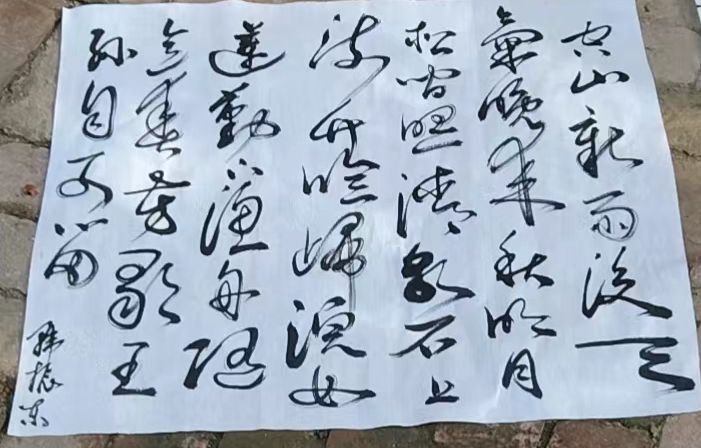 空山新雨後天
氣晚來秋明月
松間照清泉石上
流竹喧歸浣女
蓮動下漁舟隨
意春芳歇王
孫自可留